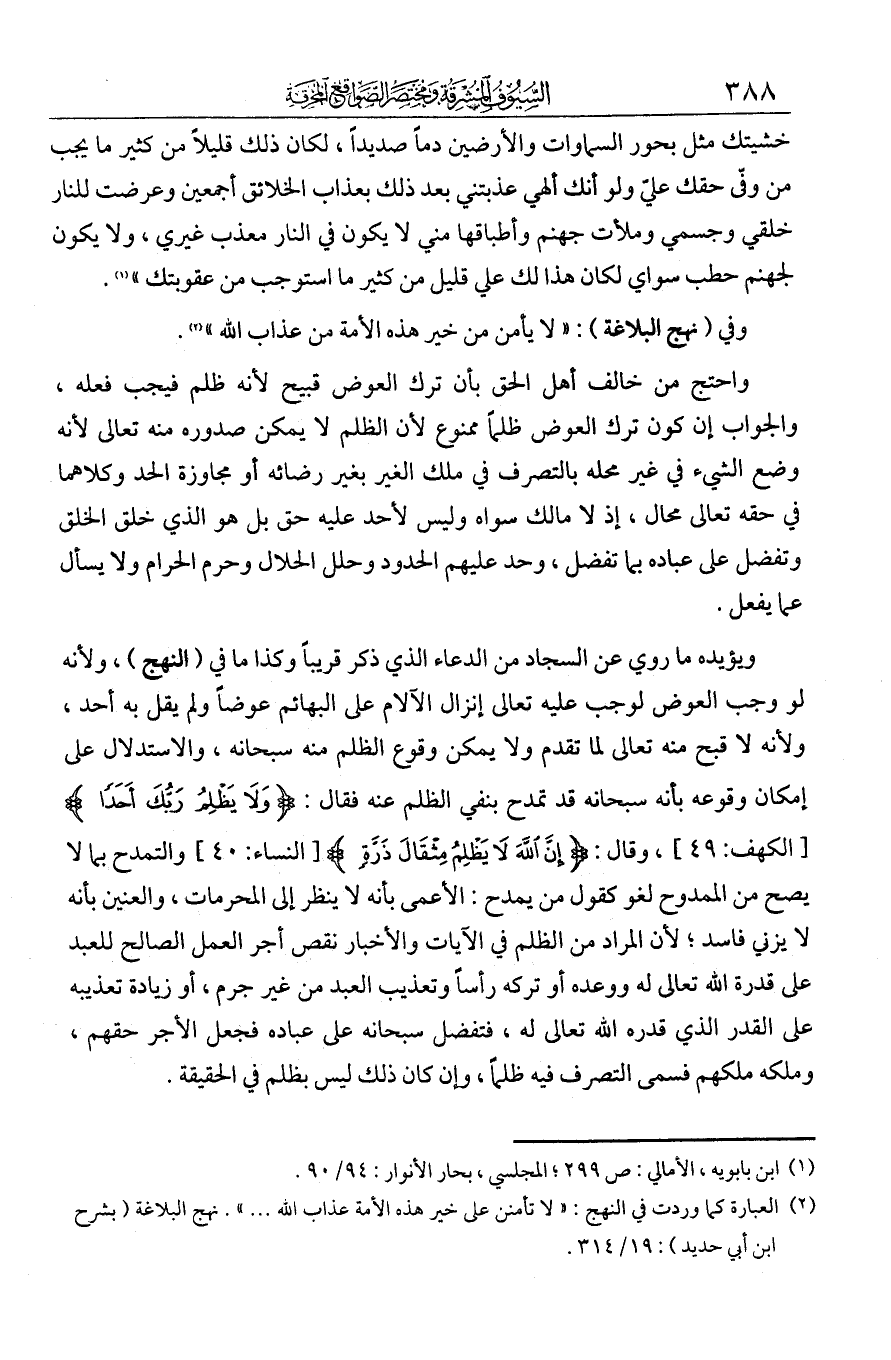 ٣٨٨ السيوف المشرقة ومختصر الصواقع المحرقة
خشيتك مثل بحور السماوات والأرضين دماً صديداً ، لكان ذلك قليلاً من كثير ما يجب
من وفّى حقك عليّ ولو أنك ألهي عذبتني بعد ذلك بعذاب الخلائق أجمعين وعرضت للنار
خلقي وجسمي وملأت جهنم وأطباقها مني لا يكون في النار معذب غيري ، ولا يكون
لجهنم حطب سواي لكان هذا لك علي قليل من كثير ما استوجب من عقوبتك »(١) .
وفي ( نهج البلاغة ) : « لا يأمن من خير هذه الأمة من عذاب الله »(٢) .
واحتج من خالف أهل الحق بأن ترك العوض قبيح لأنه ظلم فيجب فعله ،
والجواب إن كون ترك العوض ظلماً ممنوع لأن الظلم لا يمكن صدوره منه تعالى لأنه
وضع الشيء في غير محله بالتصرف في ملك الغير بغير رضائه أو مجاوزة الحد وكلاهما
في حقه تعالى محال ، إذ لا مالك سواه وليس لأحد عليه حق بل هو الذي خلق الخلق
وتفضل على عباده بما تفضل ، وحد عليهم الحدود وحلل الحلال وحرم الحرام ولا يسأل
عما يفعل .
ويؤيده ما روي عن السجاد من الدعاء الذي ذكر قريباً وكذا ما في ( النهج ) ، ولأنه
لو وجب العوض لوجب عليه تعالى إنزال الآلام على البهائم عوضاً ولم يقل به أحد ،
ولأنه لا قبح منه تعالى لما تقدم ولا يمكن وقوع الظلم منه سبحانه ، والاستدلال على
إمكان وقوعه بأنه سبحانه قد تمدح بنفي الظلم عنه فقال : ﴿ وَلَا يَظْلِمُ رَبُّكَ أَحَدًا ﴾
[ الكهف: ٤٩ ] ، وقال : ﴿ إِنَّ اللَّهَ لَا يَظْلِمُ مِثْقَالَ ذَرَّةٍ ﴾ [ النساء: ٤٠ ] والتمدح بما لا
يصح من الممدوح لغو كقول من يمدح : الأعمى بأنه لا ينظر إلى المحرمات ، والعنين بأنه
لا يزني فاسد ؛ لأن المراد من الظلم في الآيات والأخبار نقص أجر العمل الصالح للعبد
على قدرة الله تعالى له ووعده أو تركه رأساً وتعذيب العبد من غير جرم ، أو زيادة تعذيبه
على القدر الذي قدره الله تعالى له ، فتفضل سبحانه على عباده فجعل الأجر حقهم ،
وملكه ملكهم فسمى التصرف فيه ظلماً ، وإن كان ذلك ليس بظلم في الحقيقة .
(١) ابن بابويه ، الأمالي : ص ٢٩٩ ؛ المجلسي ، بحار الأنوار : ٩٤/ ٩٠ .
(٢) العبارة كما وردت في النهج : « لا تأمنن على خير هذه الأمة عذاب الله ... » . نهج البلاغة ( بشرح
ابن أبي حديد ) : ١٩/ ٣١٤ .